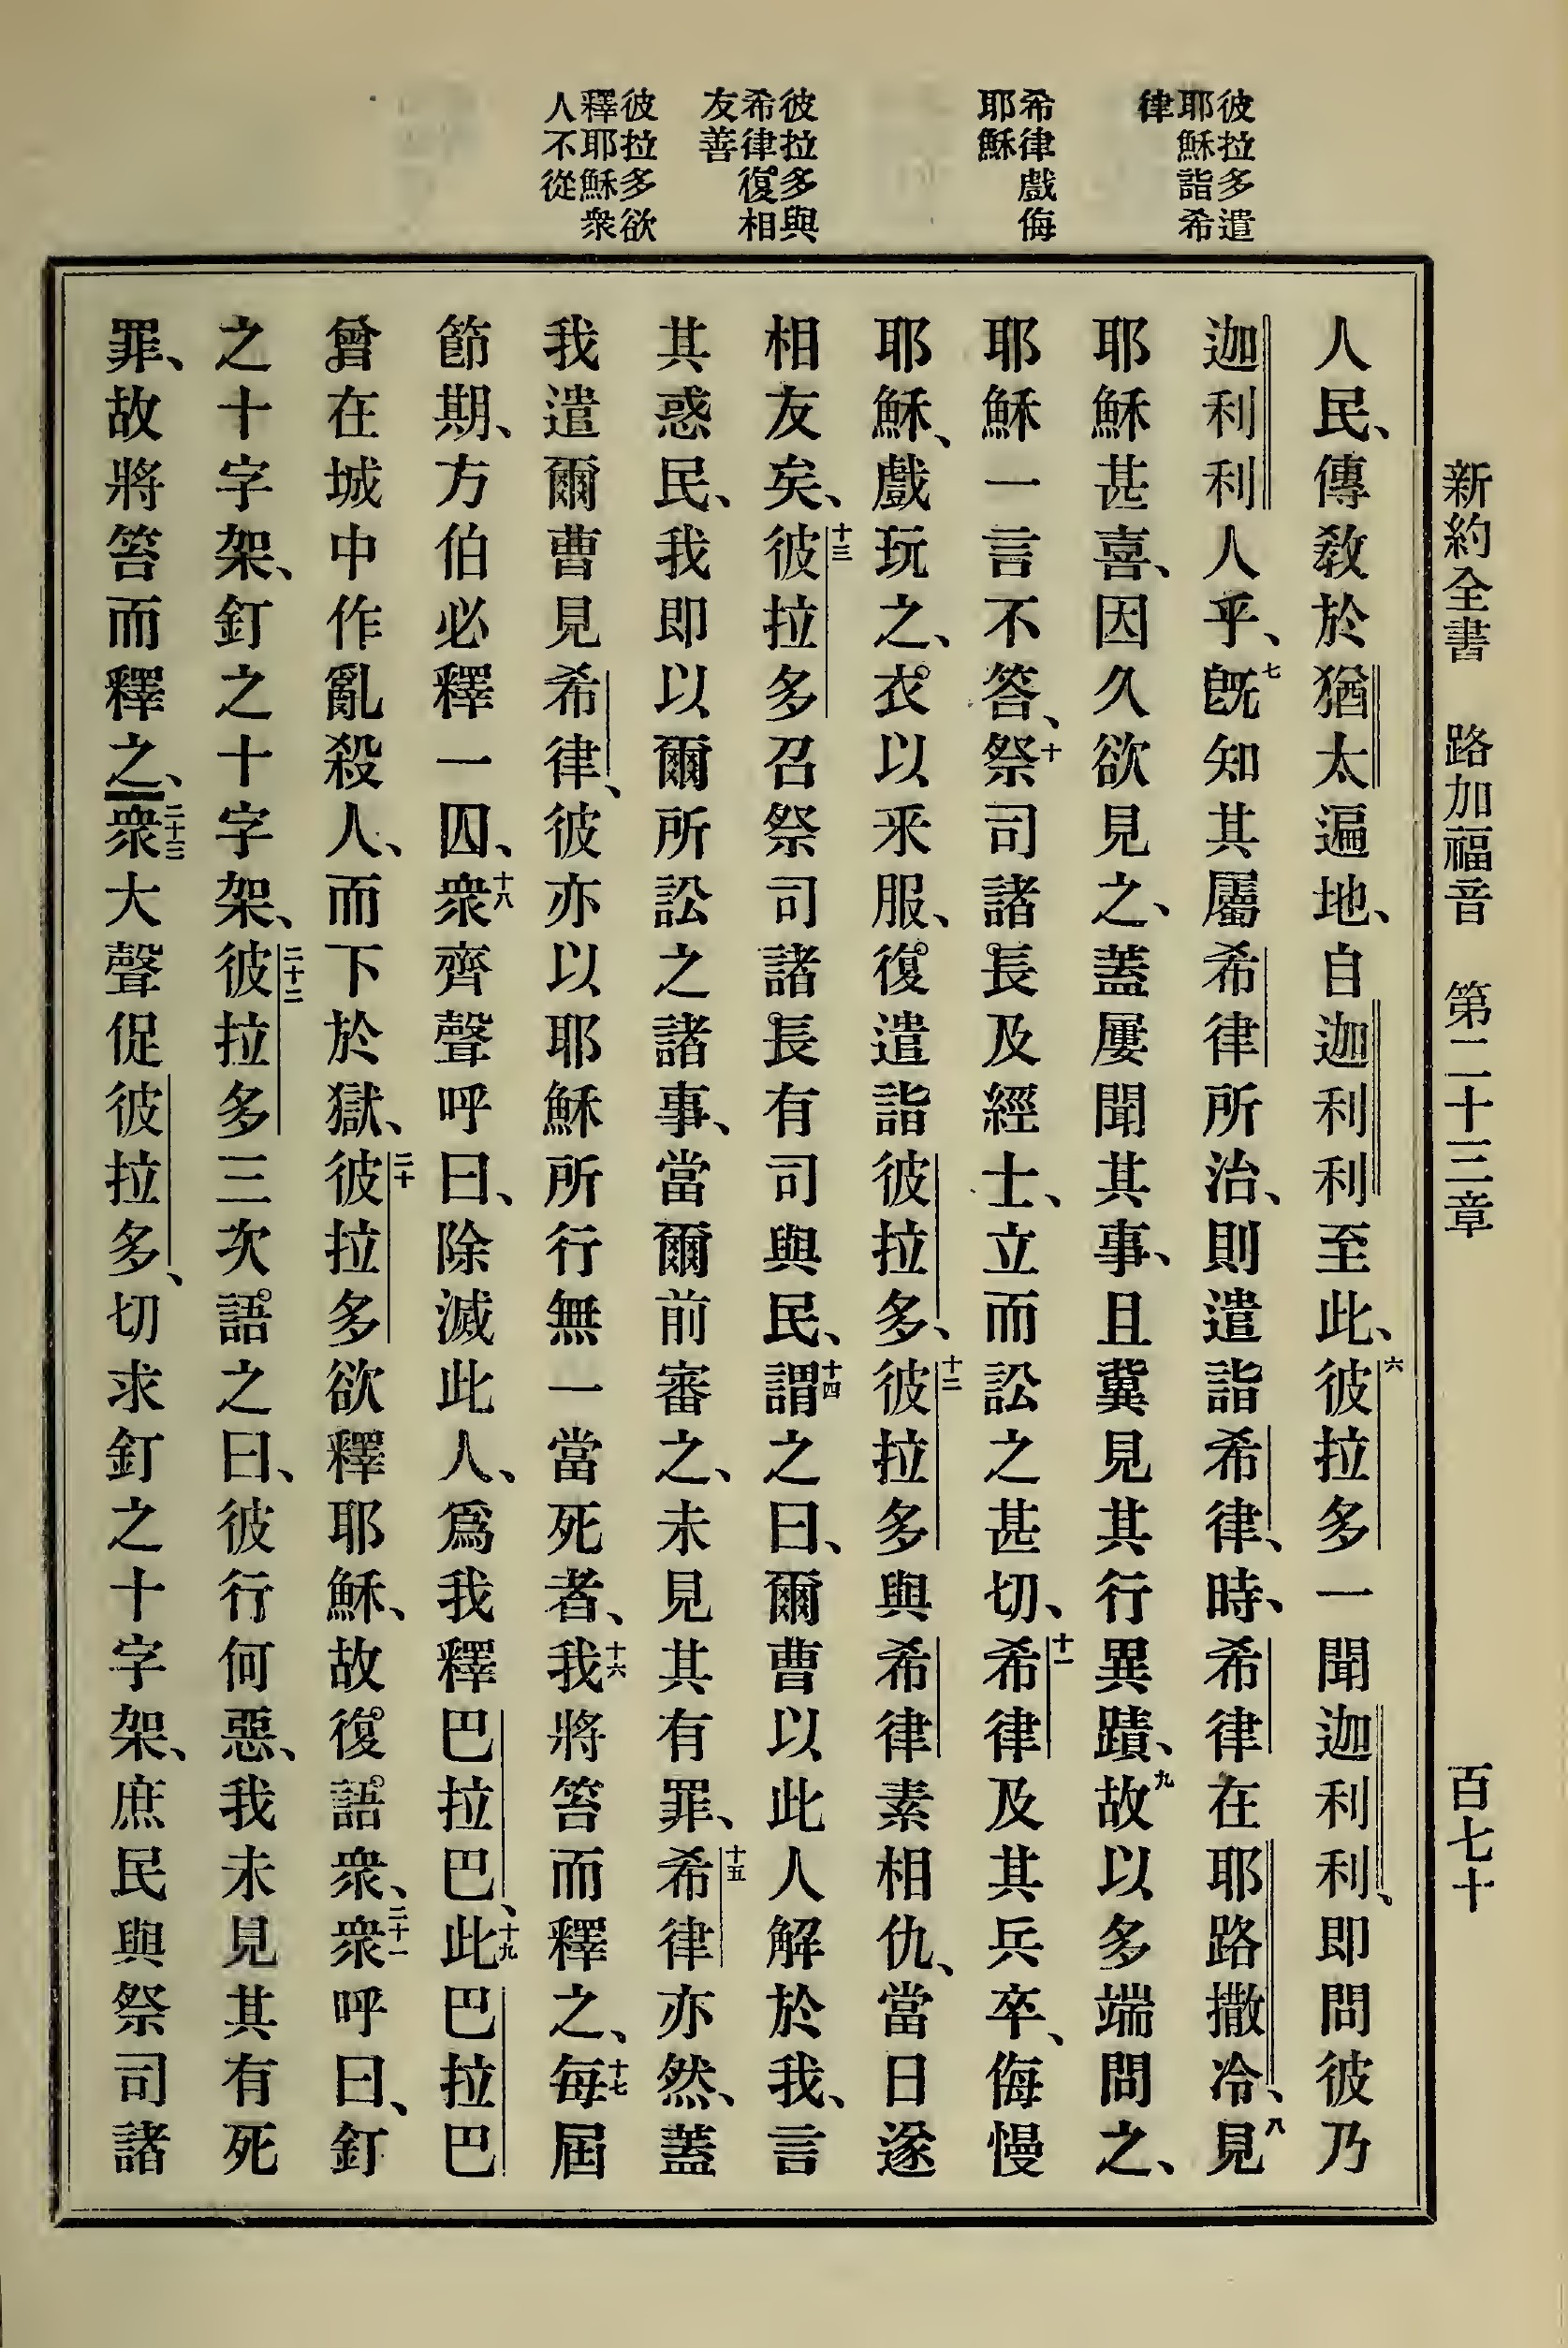 新約全書 路加福音 第二十三章 百七十
彼拉多遣
耶穌詣希
律
希律戲侮
耶穌
彼拉多與
希律復相
友善
彼拉多欲
釋耶穌衆
人不從
人民、傳教於猶太遍地、自迦利利至此、六彼拉多一聞迦利利、即問彼乃
迦利利人乎、七旣知其屬希律所治、則遣詣希律、時、希律在耶路撒冷、八見
耶穌甚喜、因久欲見之、蓋屢聞其事、且冀見其行異蹟、九故以多端問之、
耶穌一言不答、十祭司諸長及經士、立而訟之甚切、十一希律及其兵卒、侮慢
耶穌、戲玩之、衣以釆服、復遣詣彼拉多、十二彼拉多與希律素相仇、當日遂
相友矣、十三彼拉多召祭司諸長有司與民、十四謂之曰、爾曹以此人解於我、言
其惑民、我即以爾所訟之諸事、當爾前審之、未見其有罪、十五希律亦然、蓋
我遣爾曹見希律、彼亦以耶穌所行無一當死者、十六我將笞而釋之、十七每屆
節期、方伯必釋一囚、十八衆齊聲呼曰、除滅此人、爲我釋巴拉巴、十九此巴拉巴
曾在城中作亂殺人、而下於獄、二十彼拉多欲釋耶穌、故復語衆、二十一衆呼曰、釘
之十字架、釘之十字架、二十二彼拉多三次語之曰、彼行何惡、我未見其有死
罪、故將笞而釋之、二十三衆大聲促彼拉多、切求釘之十字架、庶民與祭司諸